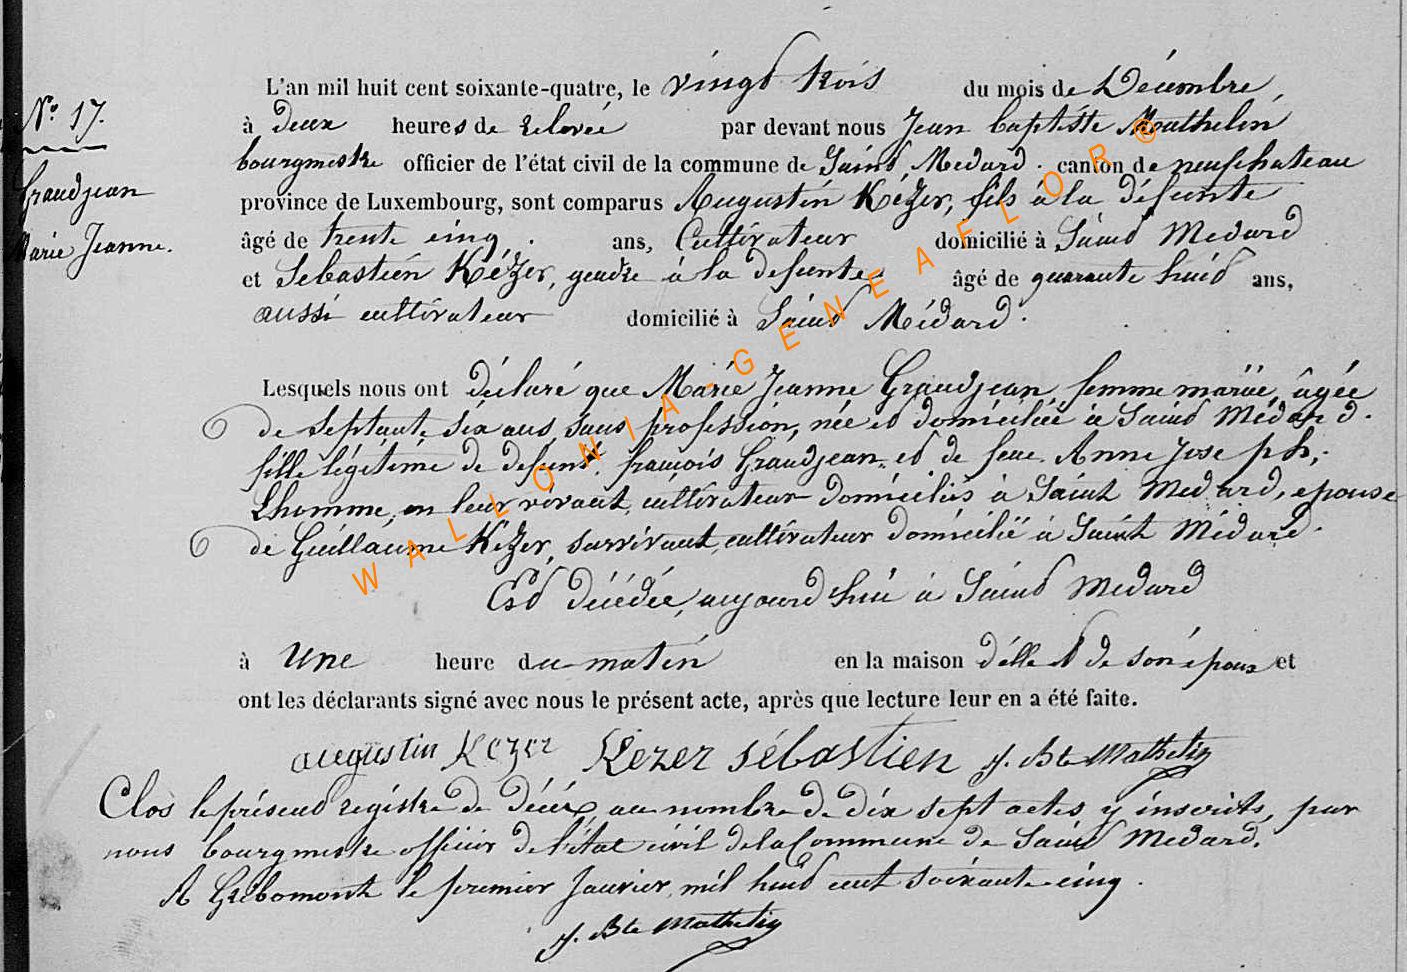 L'an mil huit cent soixante-quatre, le vingt trois du mois de Décembre,
N.° 17.
à deux heures de relevée par devant nous Jean baptiste Mathelin
bourgmestre officier de l'état civil de la commune de Saint Medard. canton de neufchateau
Grandjean
province de Luxembourg, sont comparus Augustin Kézer, fils à la défunte
Marie Jeanne.
âgé de trente cinq, ans, Cultivateur domicilié à Saint Medard
et Sebastien Kézer, gendre à la defunte, âgé de quarante huit ans,
aussi cultivateur domicilié à Saint Médard.
Lesquels nous ont déclaré que Marie Jeanne Grandjean, femme mariée, âgée
de septante six ans, sans profession, née et domiciliée à Saint Médard.
fille légitime de defunt françois Grandjean et de feue Anne Joseph,
Lhomme, en leur vivant, cultivateur domiciliés à Saint Medard, epouse
de Guillaume Kézer, survivant, cultivateur domicilié à Saint Médard.
Est décédée, aujourd'hui à Saint Medard
à Une heure du matin en la maison d'elle et de son époux et
ont les déclarants signé avec nous le présent acte, après que lecture leur en a été faite.
augustin Kezer Kezer sébastien J. Bte Mathelin
Clos le présent registre de décès, au nombre de dix sept actes y inscrits, par
nous bourgmestre officier de l'état civil de la Commune de Saint Medard.
A Gribomont le premier Janvier, mil huit cent soixante cinq.
J. Bte Mathelin
WALLONIA-GENEAFLOR®